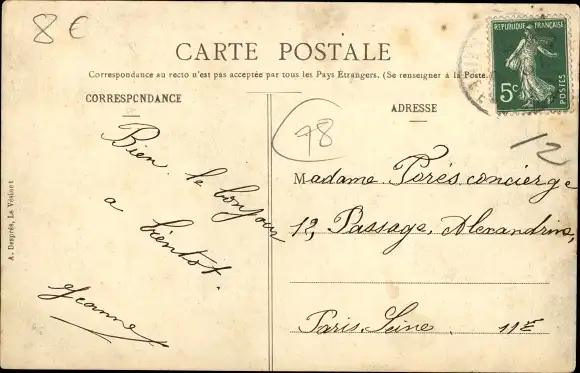 8 €
CARTE POSTALE
Correspondance au recto n'est pas acceptée par tous les Pays Étrangers. (Se renseigner à la Poste.)
CORRESPONDANCE
ADRESSE
RÉPUBLIQUE FRANÇAISE
5c
POSTES
78
12
Bien le bonjour
a bientot.
Jeanne
Madame Porés concierge
12, Passage, Alexandrine,
Paris. Seine. 11E
A. Desprès, Le Vésinet